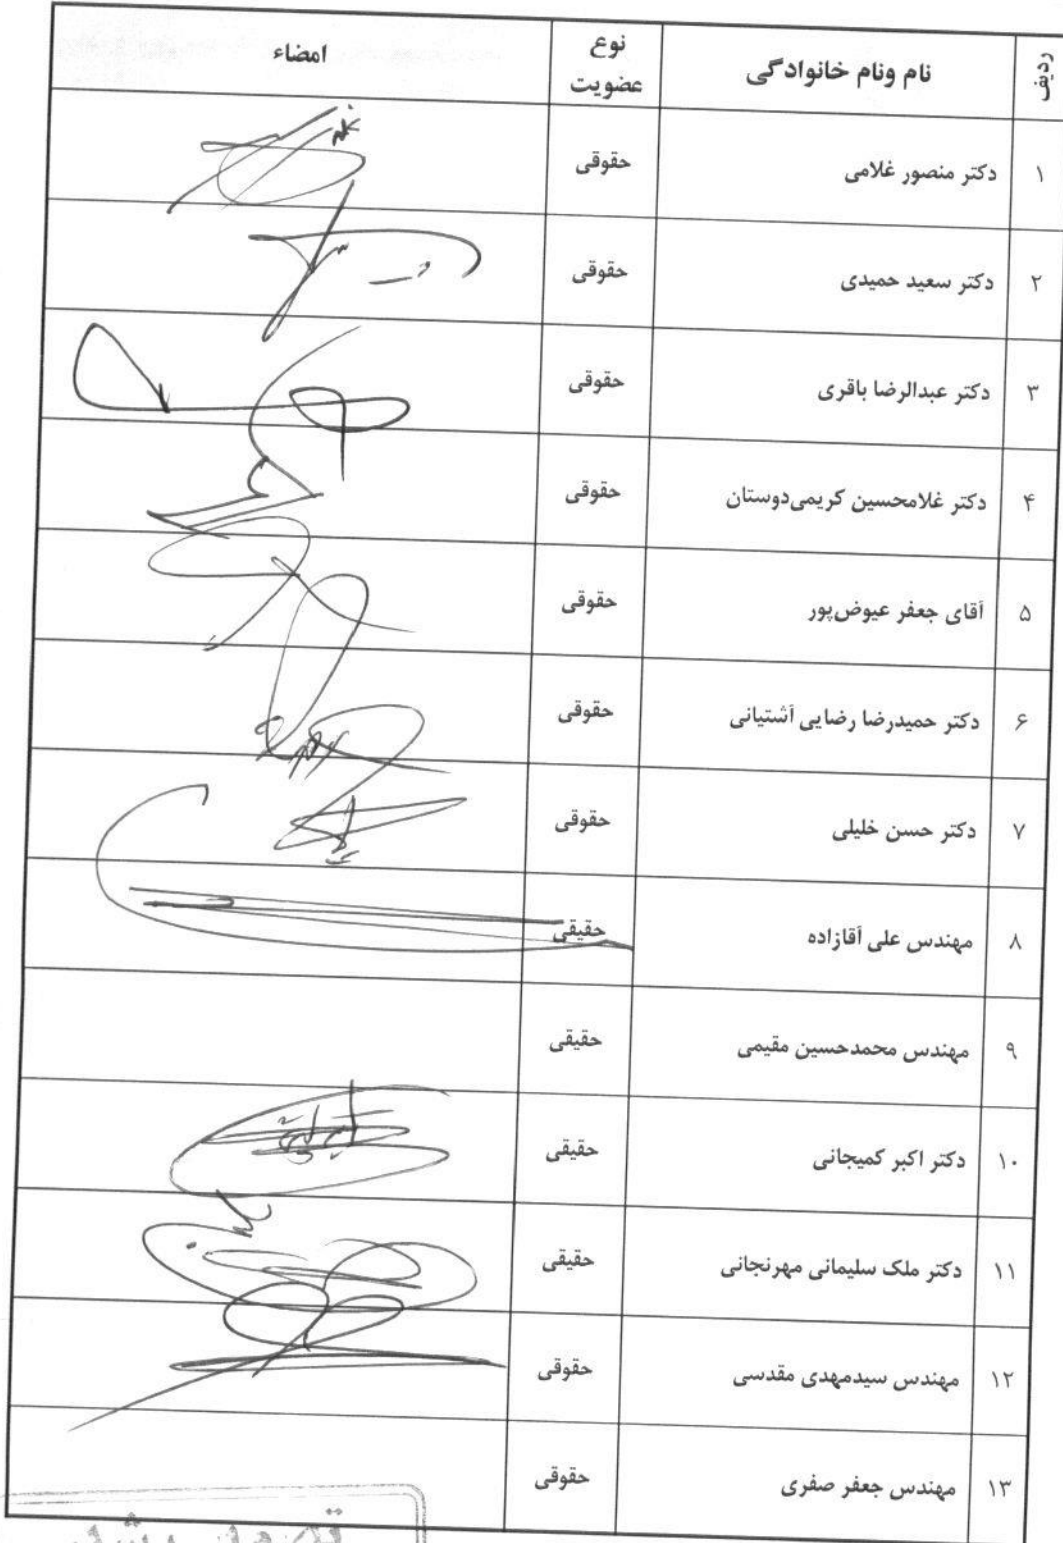 ردیف نام ونام خانوادگی نوع عضویت امضاء
۱ دکتر منصور غلامی حقوقی
۲ دکتر سعید حمیدی حقوقی
۳ دکتر عبدالرضا باقری حقوقی
۴ دکتر غلامحسین کریمی‌دوستان حقوقی
۵ آقای جعفر عیوض‌پور حقوقی
۶ دکتر حمیدرضا رضایی آشتیانی حقوقی
۷ دکتر حسن خلیلی حقوقی
۸ مهندس علی آقازاده حقیقی
۹ مهندس محمدحسین مقیمی حقیقی
۱۰ دکتر اکبر کمیجانی حقیقی
۱۱ دکتر ملک سلیمانی مهرنجانی حقیقی
۱۲ مهندس سیدمهدی مقدسی حقوقی
۱۳ مهندس جعفر صفری حقوقی